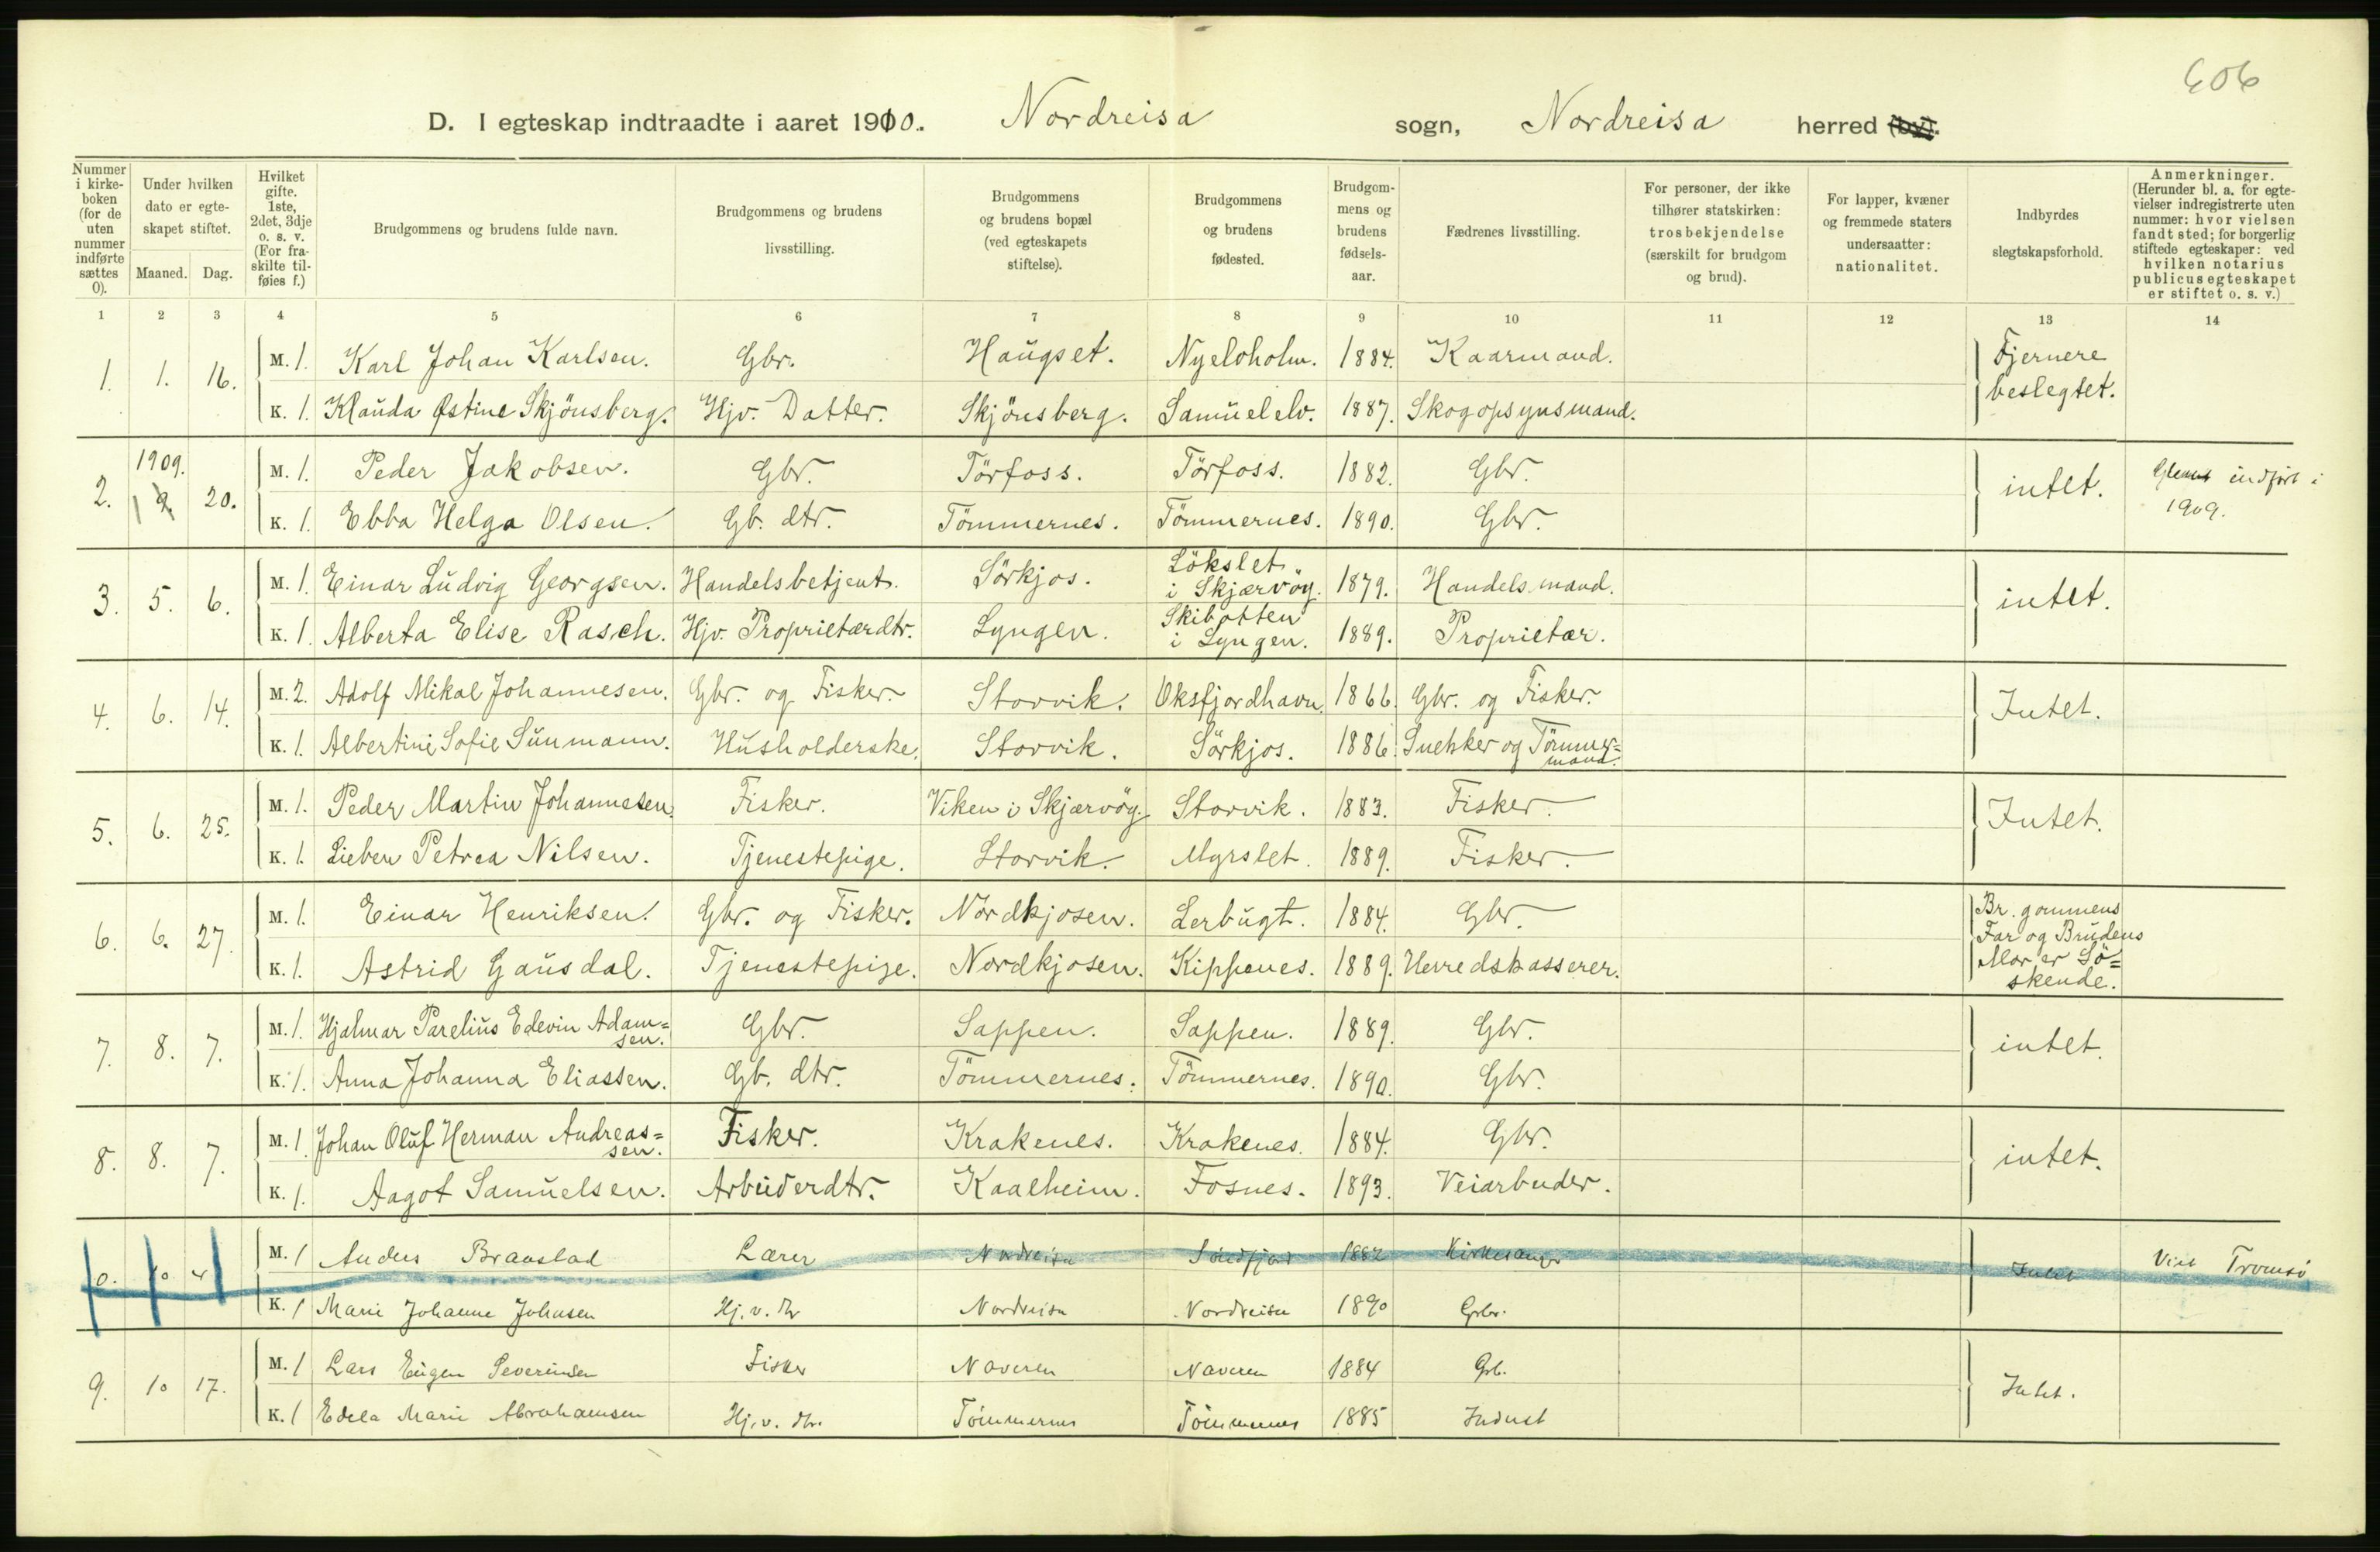 606
D. I egteskap indtraadte i aaret 1910. Nordreisa sogn, Nordreisa herred (by).
Nummer i kirke-boken (for de uten nummer indførte sættes 0).
Under hvilken dato er egte-skapet stiftet.
Maaned. Dag.
Hvilket gifte. 1ste, 2det, 3dje o. s. v. (For fra-skilte til-føies f.)
Brudgommens og brudens fulde navn.
Brudgommens og brudens livsstilling.
Brudgommens og brudens bopæl (ved egteskapets stiftelse).
Brudgommens og brudens fødested.
Brudgom-mens og brudens fødsels-aar.
Fædrenes livsstilling.
For personer, der ikke tilhører statskirken: trosbekjendelse (særskilt for brudgom og brud).
For lapper, kvæner og fremmede staters undersaatter: nationalitet.
Indbyrdes slegtskapsforhold.
Anmerkninger. (Herunder bl. a. for egte-vielser indregistrerte uten nummer: hvor vielsen fandt sted; for borgerlig stiftede egteskaper: ved hvilken notarius publicus egteskapet er stiftet o. s. v.)
1 2 3 4 5 6 7 8 9 10 11 12 13 14
1. 1. 16. M. 1. Karl Johan Karlsen. Gbr. Haugset. Nyeloholm. 1884. Kaarmand. Fjernere beslegtet.
K. 1. Klauda Østine Skjönsberg. Hjv. Datter. Skjönsberg. Samuelelv. 1887. Skogopsynsmand.
2. 1909. 12 20. M. 1. Peder Jakobsen. Gbr. Törfoss. Törfoss. 1882. Gbr. intet. Glemt indfört i 1909.
K. 1. Ebba Helga Olsen. Gb. dtr. Tömmernes. Tömmernes. 1890. Gbr.
3. 5. 6. M. 1. Einar Ludvig Georgsen. Handelsbetjent. Sörkjos. Lökslet i Skjærvöy. 1879. Handelsmand. intet.
K. 1. Alberta Elise Rasch. Hjv. Proprietærdtr. Lyngen. Skibotten i Lyngen. 1889. Proprietær.
4. 6. 14. M. 2. Adolf Mikal Johannesen. Gbr. og Fisker. Storvik. Oksfjordhavn. 1866. Gbr. og Fisker. Intet.
K. 1. Albertine Sofie Sunmann. Husholderske. Storvik. Sörkjos. 1886. Snekker og Tömmer=mand.
5. 6. 25. M. 1. Peder Martin Johannesen. Fisker. Viken i Skjærvöy. Storvik. 1883. Fisker. Intet.
K. 1. Lieben Petrea Nilsen. Tjenestepige. Storvik. Myrslet. 1889. Fisker.
6. 6. 27. M. 1. Einar Henriksen. Gbr. og Fisker. Nordkjosen. Lerbugt. 1884. Gbr. Br.gommens Far og Brudens Mor er Sö=skende.
K. 1. Astrid Gausdal. Tjenestepige. Nordkjosen. Kippenes. 1889. Herredskasserer.
7. 8. 7. M. 1. Hjalmar Parelius Edevin Adam=sen. Gbr. Sappen. Sappen. 1889. Gbr. intet.
K. 1. Anna Johanna Eliassen. Gb. dtr. Tömmernes. Tömmernes. 1890. Gbr.
8. 8. 7. M. 1. Johan Oluf Herman Andreas=sen. Fisker. Krakenes. Krakenes. 1884. Gbr. intet.
K. 1. Aagot Samuelsen. Arbeiderdtr. Kaalheim. Fosnes. 1893. Veiarbeider.
0. 10 4 M. 1 Anders Branstad Lærer Nordreisa Söndfjord 1882 Kirkesanger Intet Viet Tromsö
K. 1 Marie Johanne Johnsen Hj. v. dtr Nordreisa Nordreisa 1890 Grbr.
9. 10 17. M. 1 Lars Eugen Severinsen Fisker Naveren Naveren 1884 Grb. Intet.
K. 1 Edela Marie Abrahamsen Hj. v. dtr. Tömmernes Tömmernes 1885 Indust